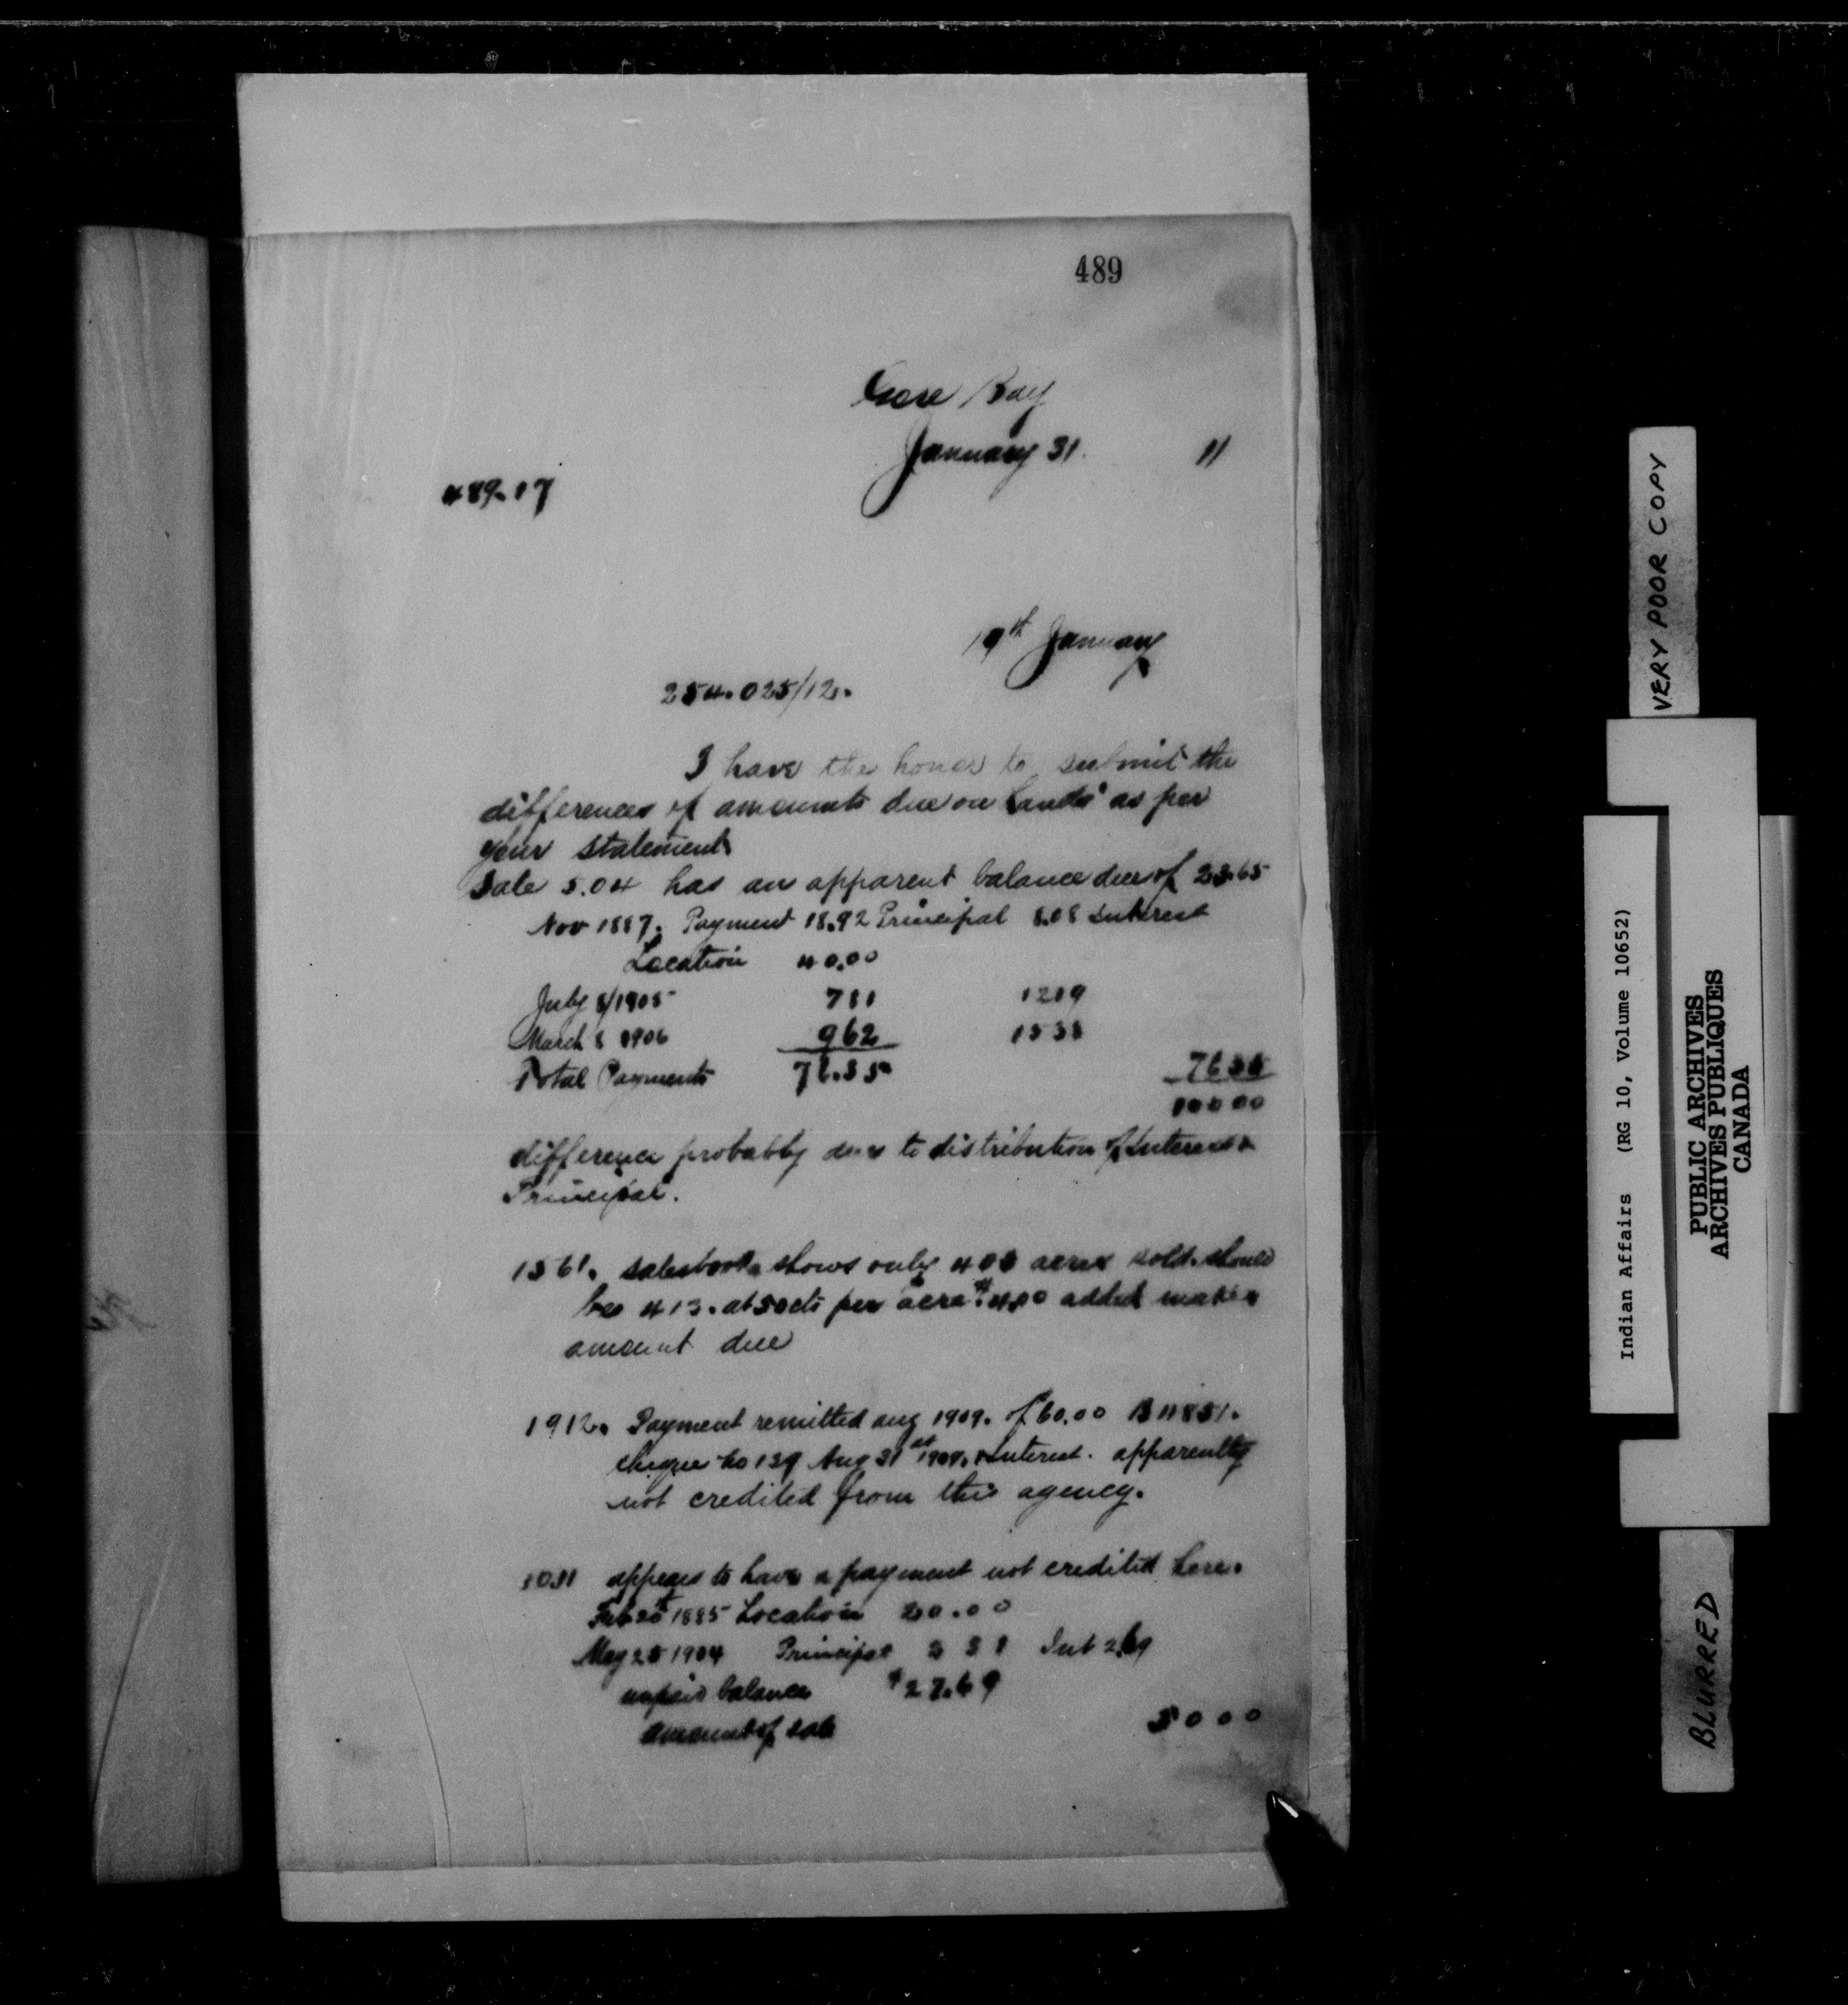 489
Gore Bay
January 31. 11
489.17
19th January
254.025/12.
I have the honor to submit the
differences of amounts due on Lands as per
your statement
Sale 5.04 has an apparent balance due of 23.65
Nov 1887. Payment 18.92 Principal 8.08 Interest
Location 40.00
July 8/1905 781 1219
March 8 1906 962 1538
Total Payments 76.35 7635
10000
difference probably due to distribution of Interest &
Principal.
1561. salesbook shows only 405 acres sold. should
be 413. at 50cts per acre $4.00 added makes
amount due
1912. Payment remitted aug 1909. of 60.00
cheque no 139 Aug 31st 1909. & Interest. apparently
not credited from this agency.
appears to have a payment not credited here.
Feb 20th 1885 Location 20.00
May 25 1904 Principal 2 31 Int 2.69
unpaid balance $27.69
amount of sale 5000
VERY POOR COPY
Indian Affairs (RG 10, Volume 10652)
PUBLIC ARCHIVES
ARCHIVES PUBLIQUES
CANADA
BLURRED